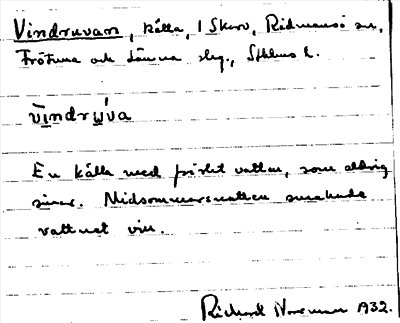 Vindruvan, källa, i Skarv, Rådmansö sn,
Frötuna och Länna slg., Sthlms l.
vindrúva
En källa med friskt vatten, som aldrig
sinar. Midsommarsnatten smakade
vattnet vin.
Richard 1932.